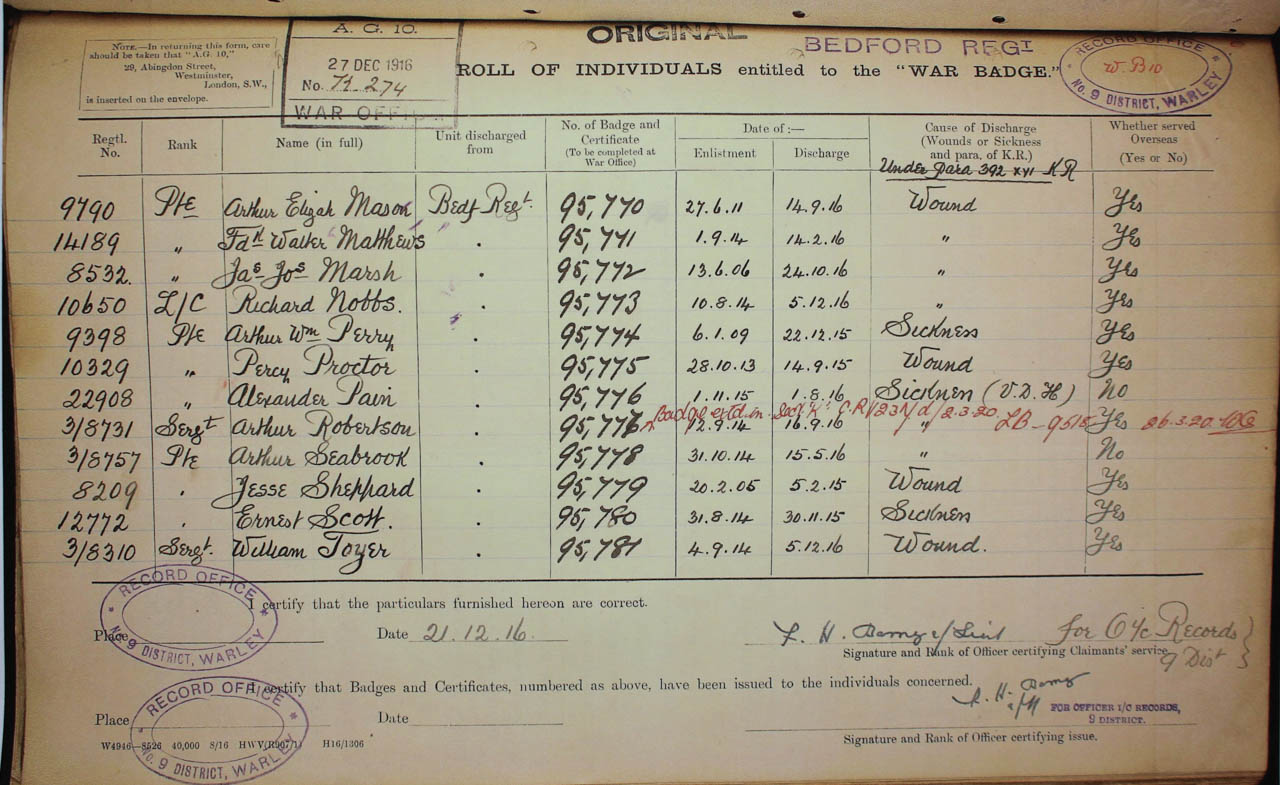 NOTE.—In returning this form, care
should be taken that "A.G. 10,"
29, Abingdon Street,
Westminster,
London, S.W.,
is inserted on the envelope.
A. G. 10.
27 DEC 1916
No. 71.274
WAR OFFICE
ORIGINAL
BEDFORD REGT
ROLL OF INDIVIDUALS entitled to the "WAR BADGE."
RECORD OFFICE
No. 9 DISTRICT, WARLEY
Regtl. No. Rank Name (in full) Unit discharged from No. of Badge and Certificate (To be completed at War Office) Date of :— Enlistment Discharge Cause of Discharge (Wounds or Sickness and para. of K.R.) Whether served Overseas (Yes or No)
Under Para 392 XVI KR
9790 Pte Arthur Elizah Mason Bedf Regt. 95,770 27.6.11 14.9.16 Wound Yes
14189 " Fdk Walter Matthews . 95,771 1.9.14 14.2.16 " Yes
8532. " Jas Jos Marsh . 95,772 13.6.06 24.10.16 " Yes
10650 L/C Richard Nobbs. . 95,773 10.8.14 5.12.16 " Yes
9398 Pte Arthur Wm Perry . 95,774 6.1.09 22.12.15 Sickness Yes
10329 " Percy Proctor . 95,775 28.10.13 14.9.15 Wound Yes
22908 " Alexander Pain . 95,776 1.11.15 1.8.16 Sickness (V.D.H) No
Badge 2.3.20. 26.3.20.
3/8731 Sergt Arthur Robertson . 95,777 12.9.14 16.9.16 " Yes
3/8757 Pte Arthur Seabrook . 95,778 31.10.14 15.5.16 " No
8209 . Jesse Sheppard . 95,779 20.2.05 5.2.15 Wound Yes
12772 . Ernest Scott. . 95,780 31.8.14 30.11.15 Sickness Yes
3/8310 Sergt. William Toyer . 95,781 4.9.14 5.12.16 Wound. Yes
RECORD OFFICE
No. 9 DISTRICT, WARLEY
I certify that the particulars furnished hereon are correct.
Place Date 21.12.16.
for O i/c Records
9 Dist
Signature and Rank of Officer certifying Claimants' service
I certify that Badges and Certificates, numbered as above, have been issued to the individuals concerned.
RECORD OFFICE
No. 9 DISTRICT, WARLEY
Place Date
FOR OFFICER I/C RECORDS,
9 DISTRICT.
Signature and Rank of Officer certifying issue.
W4946—8526 40,000 8/16 HWV(R907/1) H16/1306